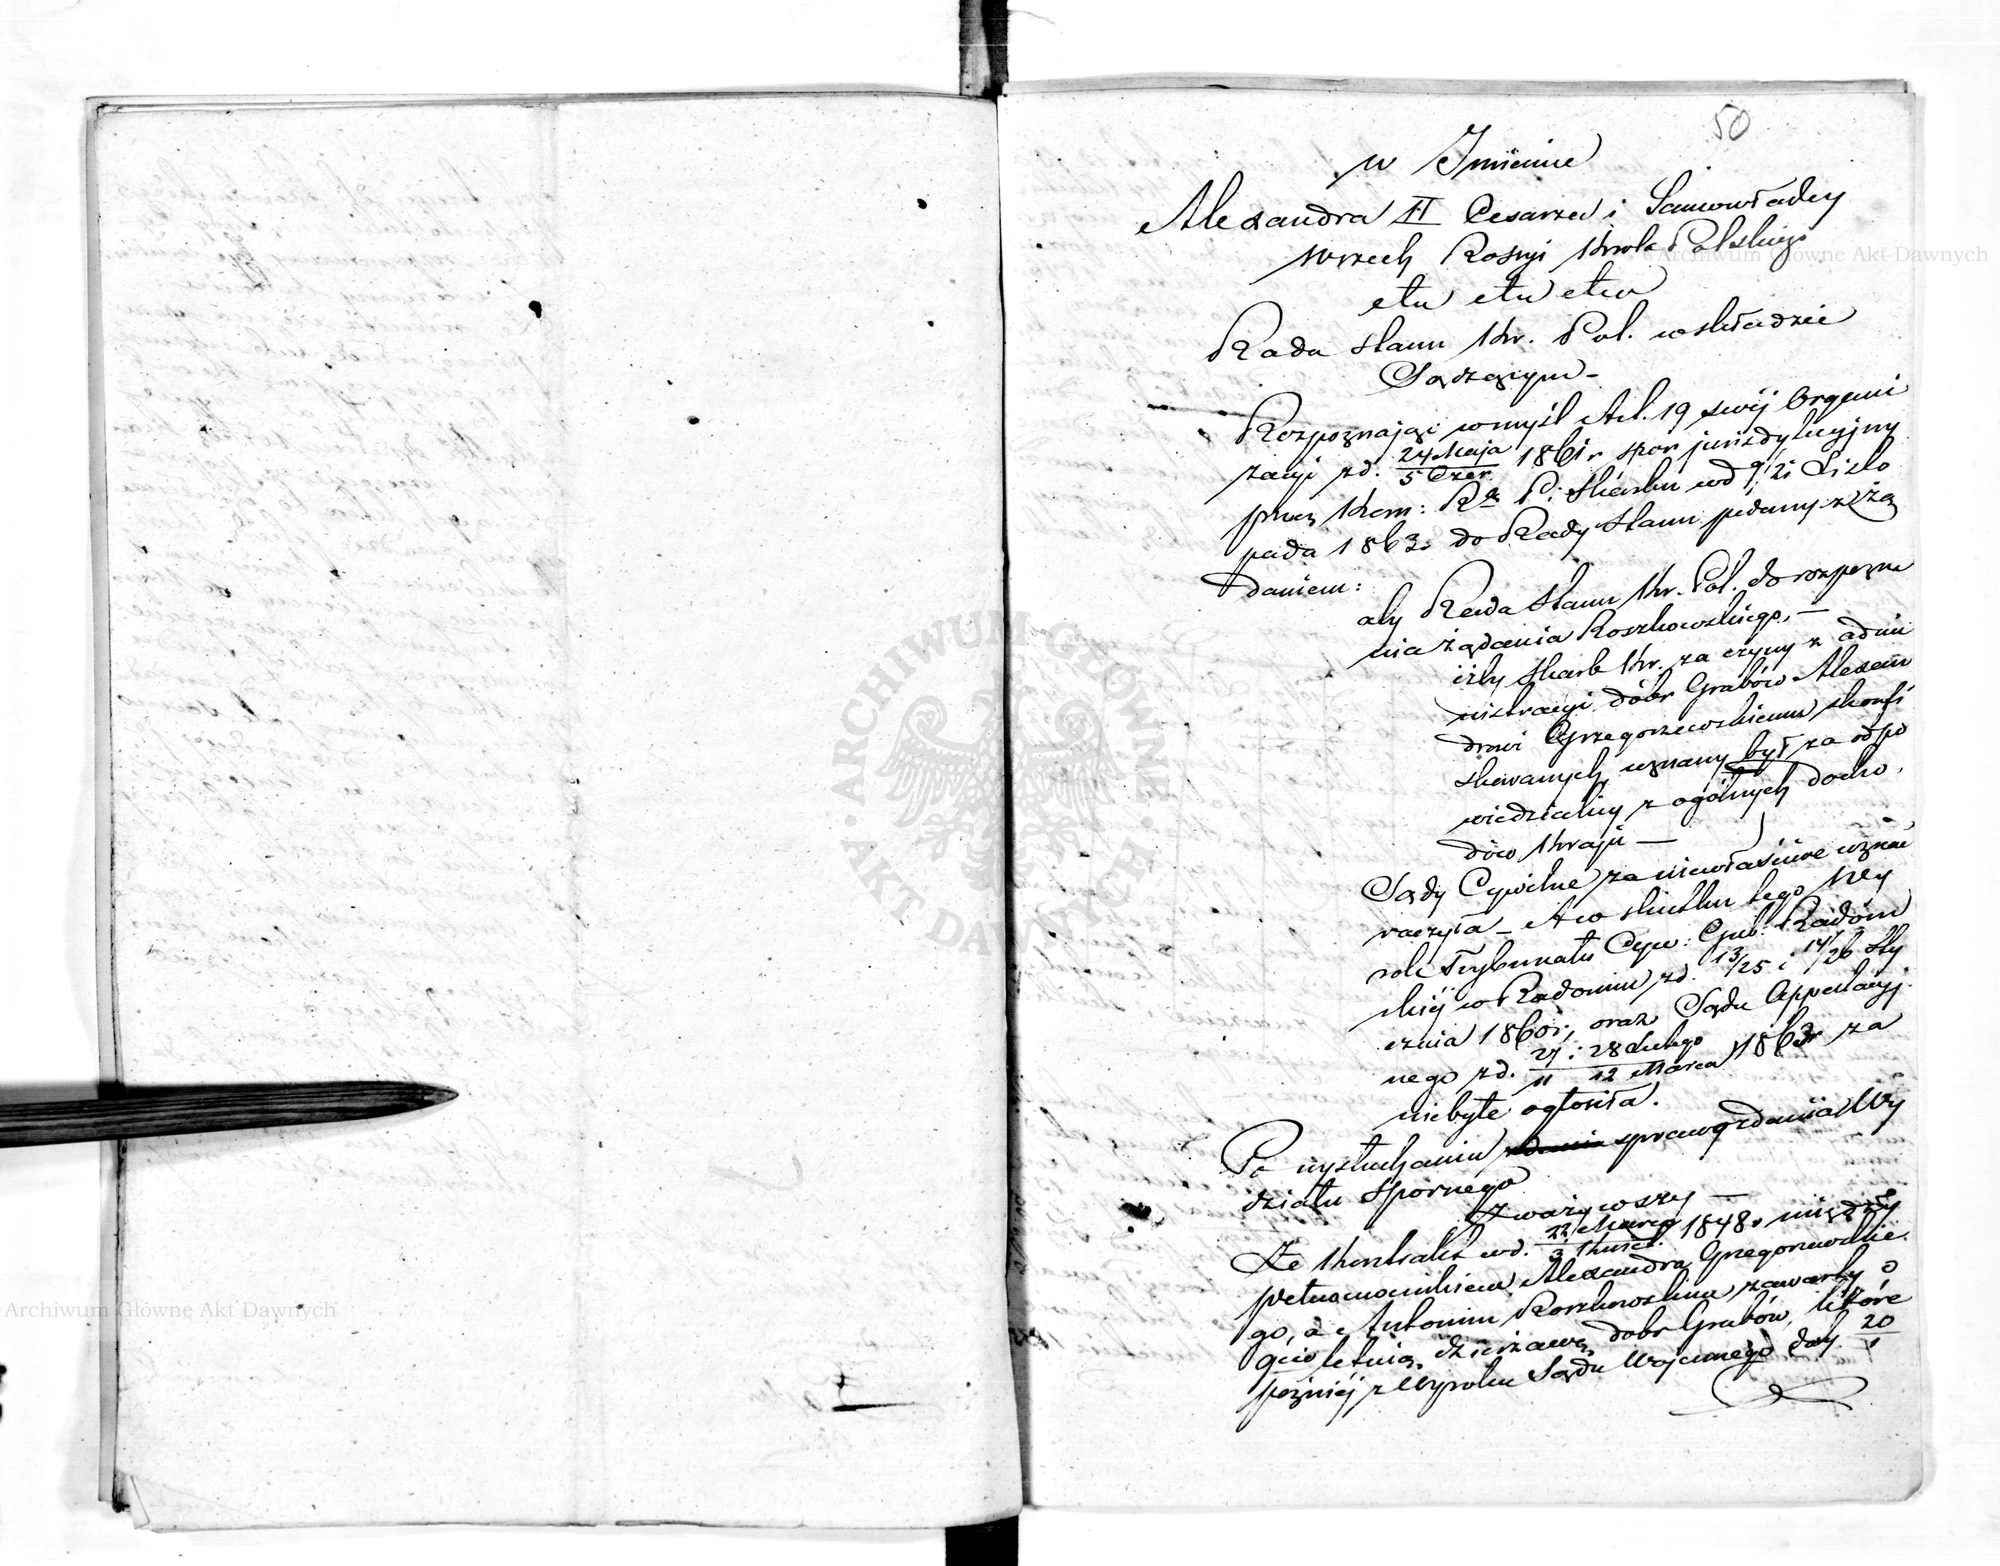 50
w Imieniu
Alexandra II Cesarza i Samowładcy
wszech Rossyi Króla Polskiego
etc etc etc
Rada Stanu Kr. Pol. w składzie
Sądzącym -
Rozpoznając w myśl Art. 19 swéj Organi
zacyi z d. 24 Maja / 5 Czer. 1861 r spór jurisdykcyjny
przez Kom: Rz. P. Skarbu w d 9/21 Listo
pada 1863 r do Rady Stanu podany z żą
daniem:
aby Rada Stanu Kr. Pol. do rozpozna
nia żądania Roszkowskiego, —
iżby Skarb Kr. za czyny z admi
nistracyi dóbr Grabów Alexan
drowi Grzegorzewskiemu skonfi
skowanych, uznany był za odpo
wiedzialny z ogólnych docho
dów Kraju —
Sądy Cywilne za niewłaściwe uznać
raczyła - A w skutku tego Wy
roki Trybunału Cyw: Gub: Radom
skiéj w Radomiu z d. 13/25 i 14/26 Sty
cznia 1860 r, oraz Sądu Appellacyj
nego z d. 27 i 28 Lutego / 11 12 Marca 1863 r za
niebyłe ogłosiła.
Po wysłuchaniu zdania sprawozdania Wy
działu Spornego
Zważywszy —
Że Kontrakt w d. 22 Marca / 3 Kwiet. 1848 r między
pełnomocnikiem Alexandra Grzegorzewskie
go, a Antonim Roszkowskim zawarty o
letnią dzierżawę dóbr Grabów, które
późniéj z Wyroku Sądu Wojennego 20
Archiwum Główne Akt Dawnych
Archiwum Główne Akt Dawnych
ARCHIWUM GŁÓWNE · AKT DAWNYCH ·